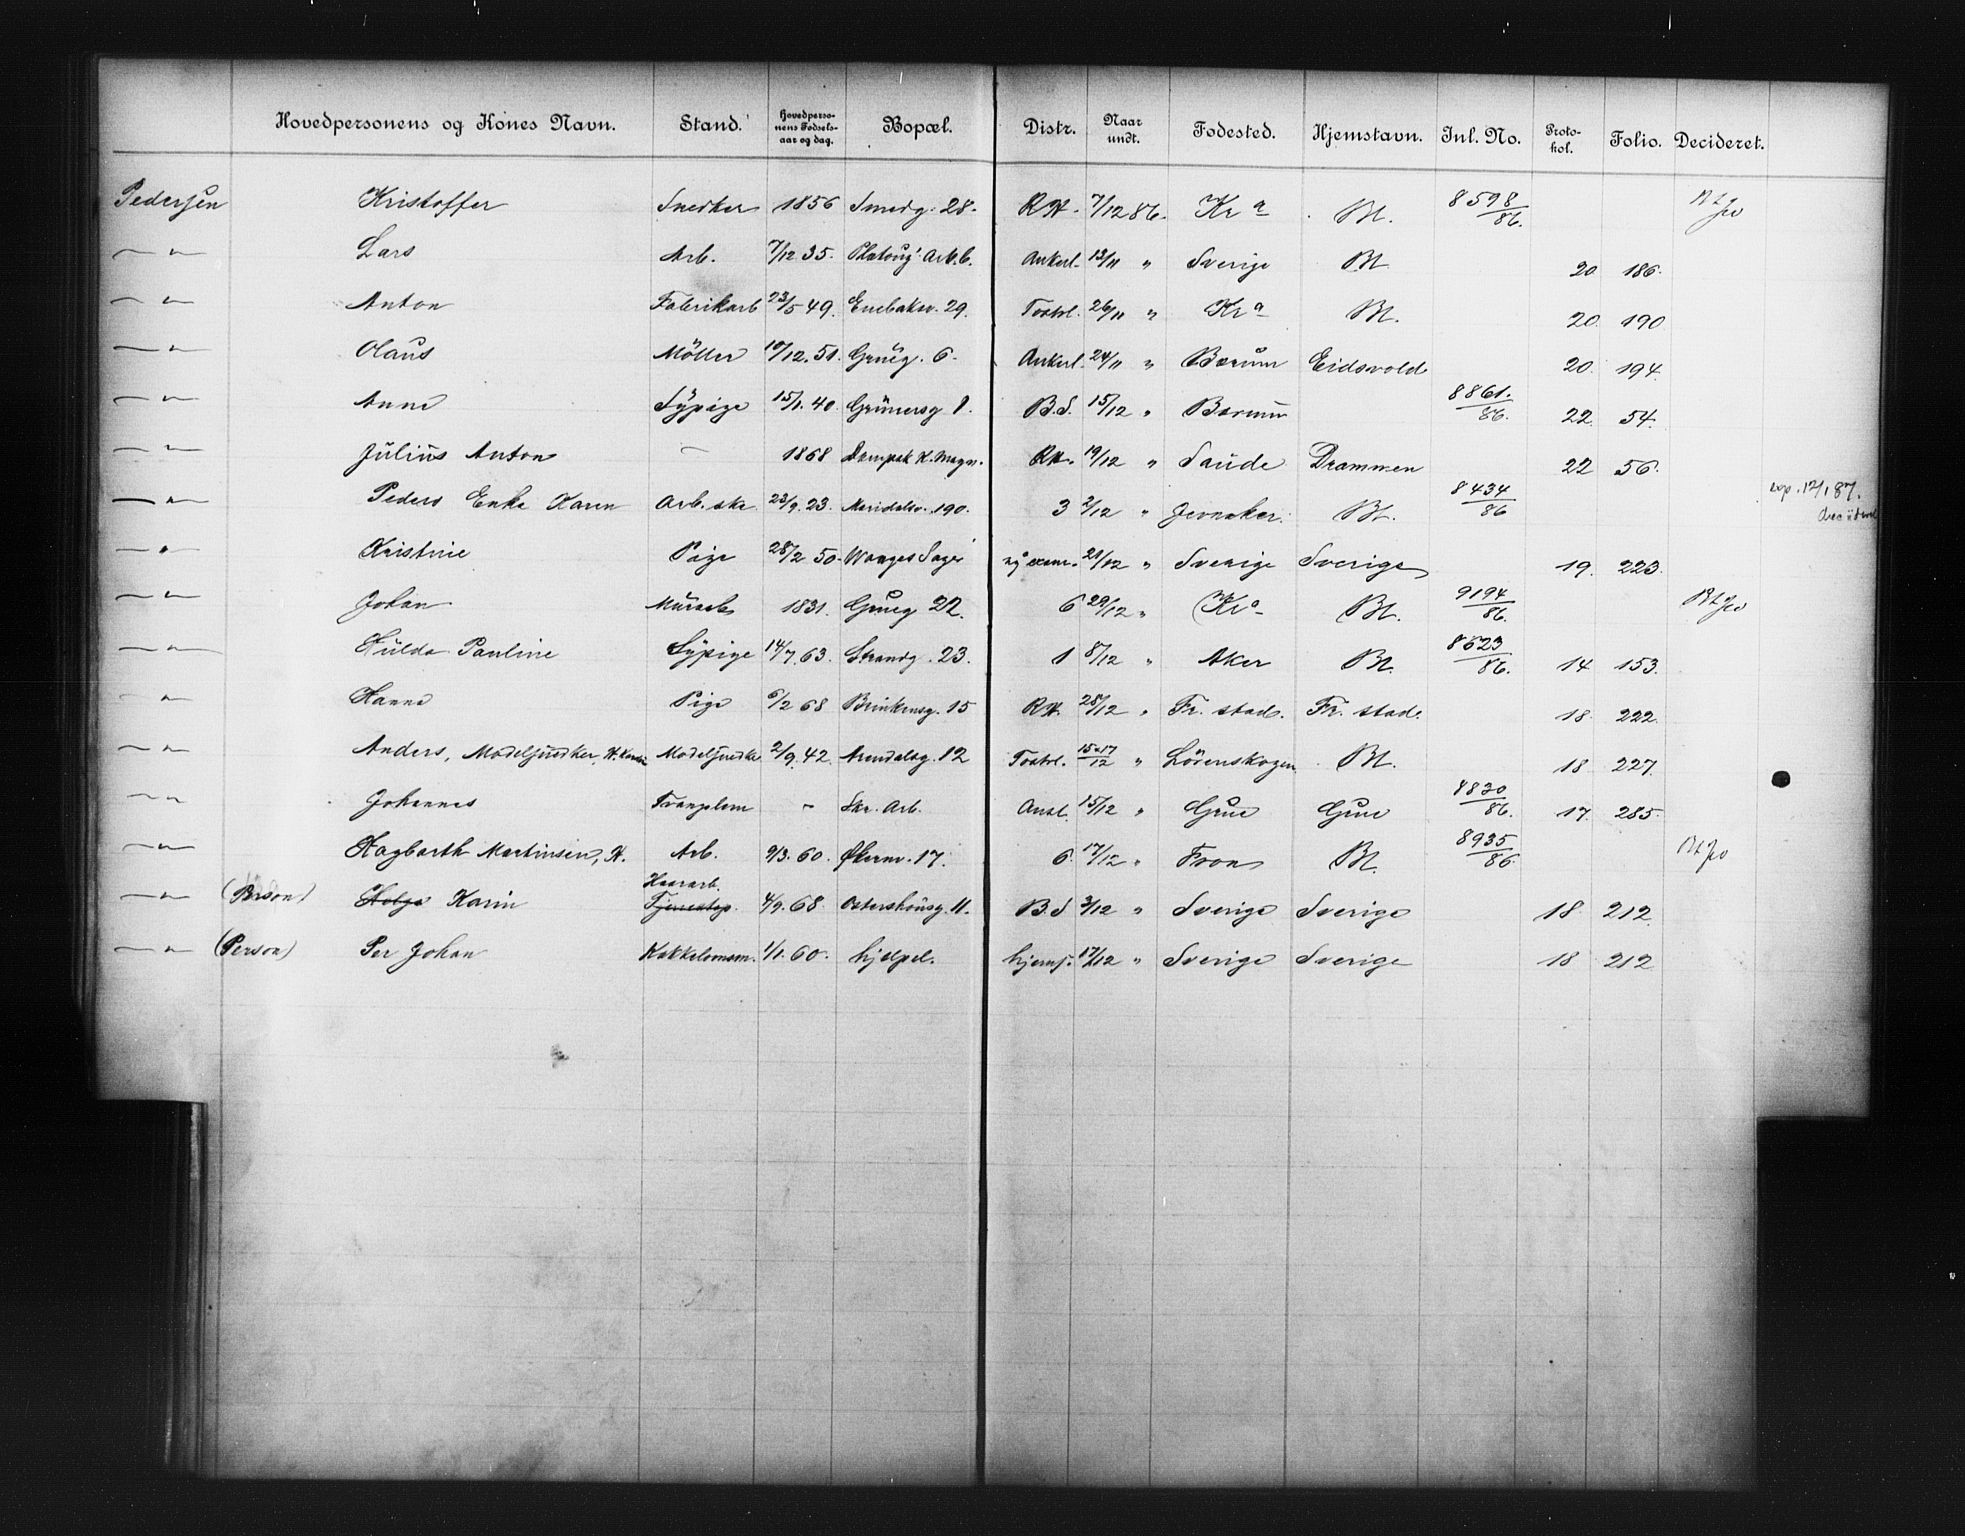 Hovedpersonens og Kones Navn. Stand. Hovedpersonens Fødselsaar og dag. Bopæl. Distr. Naar undt. Fødested. Hjemstavn. Inl. No. Protokol. Folio. Decideret.
Pedersen Kristoffer Snedker 1856 Smedg. 28. R.H. 7/12 86. Kr a Bl. 8598/86.
— " — Lars Arb. 7/12 35. Arb.b. Ankerl. 13/11 " Sverige Bl. 20 186.
— " — Anton Fabrikarb 23/5 49. Enebakv. 29. 26/11 " Kr a Bl. 20. 190
— " — Olaus Möller 10/12. 51. Grüeg. 6. Ankerl. 24/11 " Bærum Eidsvold 20. 194.
— " — Anne Sÿpige 15/1. 40. Grünersg 1. B.S. 15/12 " Bærum 8861./86. 22. 54.
— " — Jülius Anton — 1868 Dampsk K. Magn. R.H. 19/12 " Saüde Drammen 22 56.
— " — Peders Enke Karen Arb.ske 23/9. 23. Maridalsv. 190. 3 2/12 " Jevnaker. Bl. 8434/86 exp. 12/1 87.
— " — Kristine Pige 28/2 50. 21/12 " Sverige Sverige 19. 223.
— " — Johan Mürarb 1831. Grüeg 22. 6 29/12 " Kr a Bl. 9194/86.
— " — Hülda Pauline Sÿpige 14/7. 63. Strandg. 23. 1 8/12 " Aker Bl. 8623/86. 14 153.
— " — Hanna Pige 6/2 68 Brinkensg. 15 R.H. 28/12 " Fr. stad. Fr. stad. 18. 222.
— " — Anders, Modelsnedker, H. Modelsnedke 2/9. 42. Arendalsg. 12 15 & 17/12 " Lörenskogen Bl. 18 227.
— " — Johannes Tvangslem - Skr. Arb. Anst. 15/12 " Grue Grue 8820/86. 17. 285.
— " — Hagbarth Martinsen, H. Arb. 9/3. 60. Økernv. 17. 6. 17/12 " Fron Bl. 8935/86.
— " — (Person) Helga Karin Haararb. Tjenestep. 4/9. 68. 11. B.S 3/12 " Sverige Sverige 18 212
— " — (Person) Per Johan Kakkelomsm. 1/1. 60. hjælpel. hjemf. 17/12 " Sverige Sverige 18 212